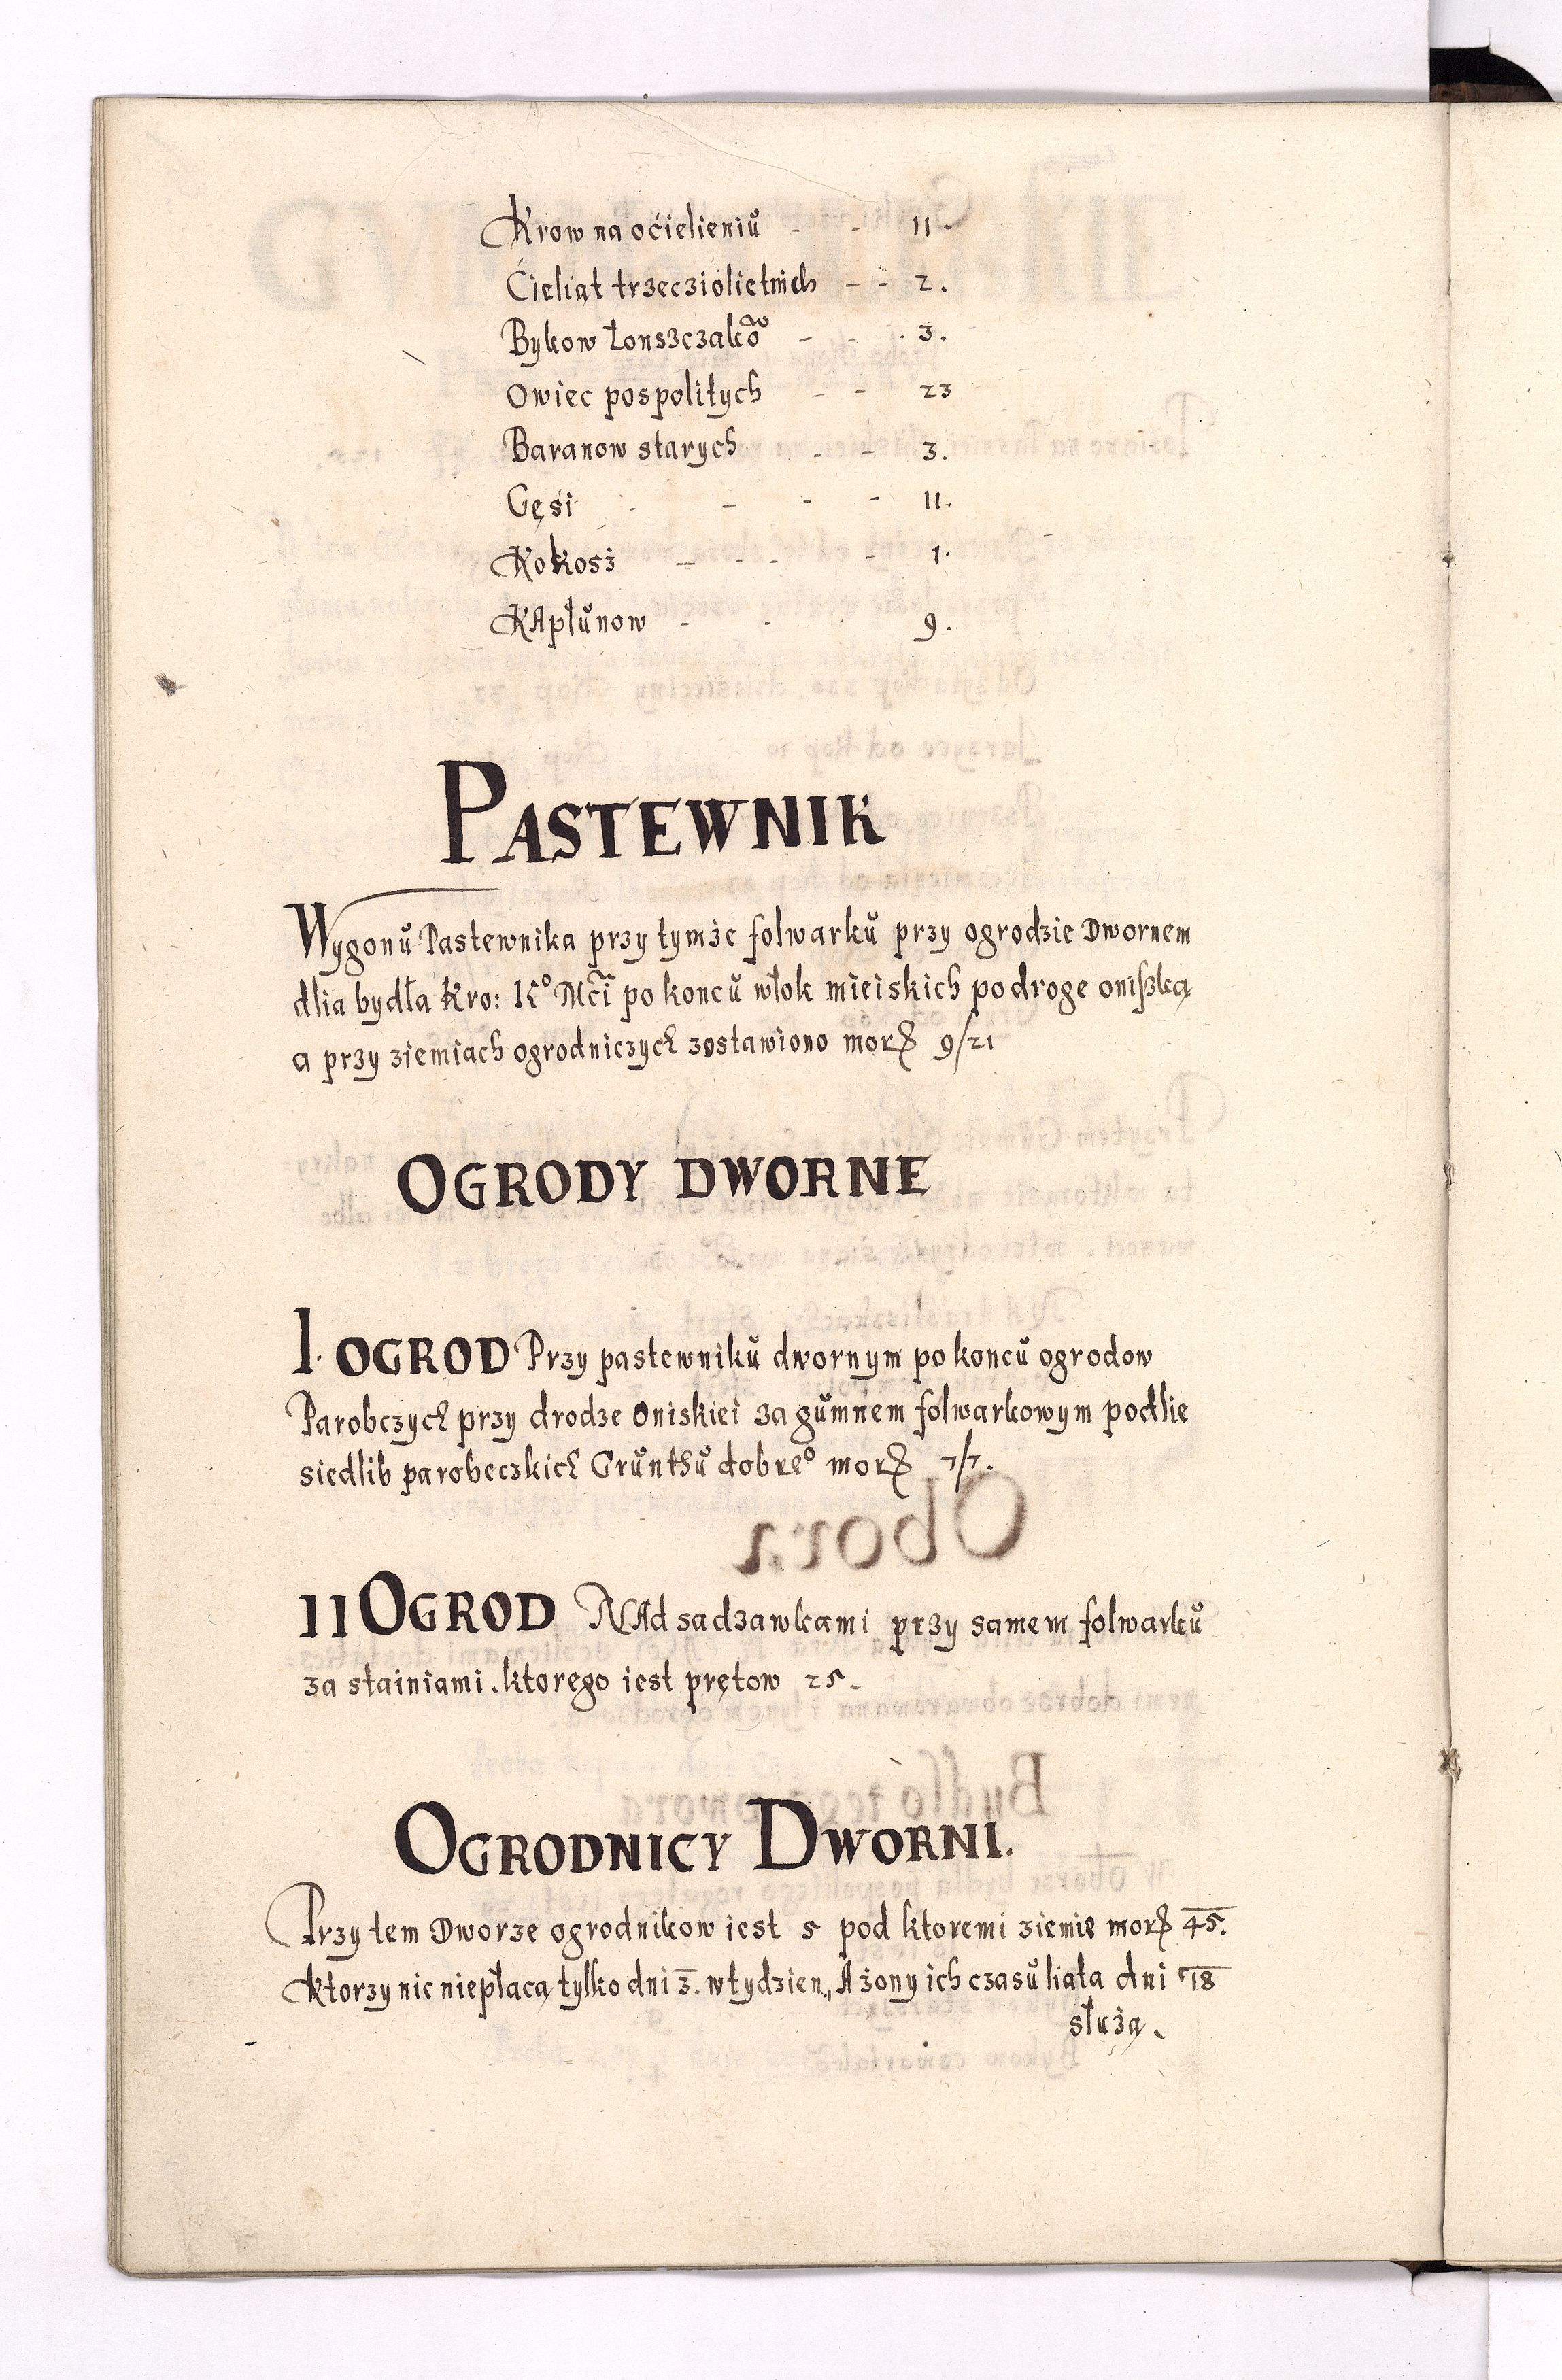 Krow na oćielieniů - - 11.
Ćieliąt trzeczioliethich - - 2.
Bykow łonszczakow - - 3.
Owiec pospolitych - - 23
Baranow starych - - 3.
Gęsi - - - 11.
Kokosż - - - - 1.
KApłůnow - - 9.
PASTEWNIK
Wygonů Pastewnika przy tymże folwarků przy ogrodzie Dwornem
dlia bydła Kro: Kº Mći po konců włok mieiskich po droge oniszką
a przy ziemiach ogrodniczych zostawiono morg 9/21
OGRODY DWORNE
I. OGROD Przy pastewniků dwornym po konců ogrodow
Parobczych przy drodze Oniskiei za gůmnem folwarkowym podlie
siedlib parobeczkich Grůnthů dobreº morg 7/7.
II OGROD NAd sadzawkami przy samem folwarků
za stainiami. ktorego iest prętow 25.
OGRODNICY DWORNI.
Przy tem Dworze ogrodnikow iest 5 pod ktoremi ziemie morg 45.
Ktorzy nic niepłacą tylko dni 3. w tydzien, A żony ich czasů liata dni 18
służą.